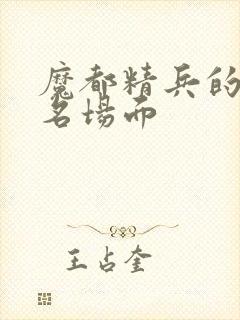 魔都精兵的
名場面
王占奎